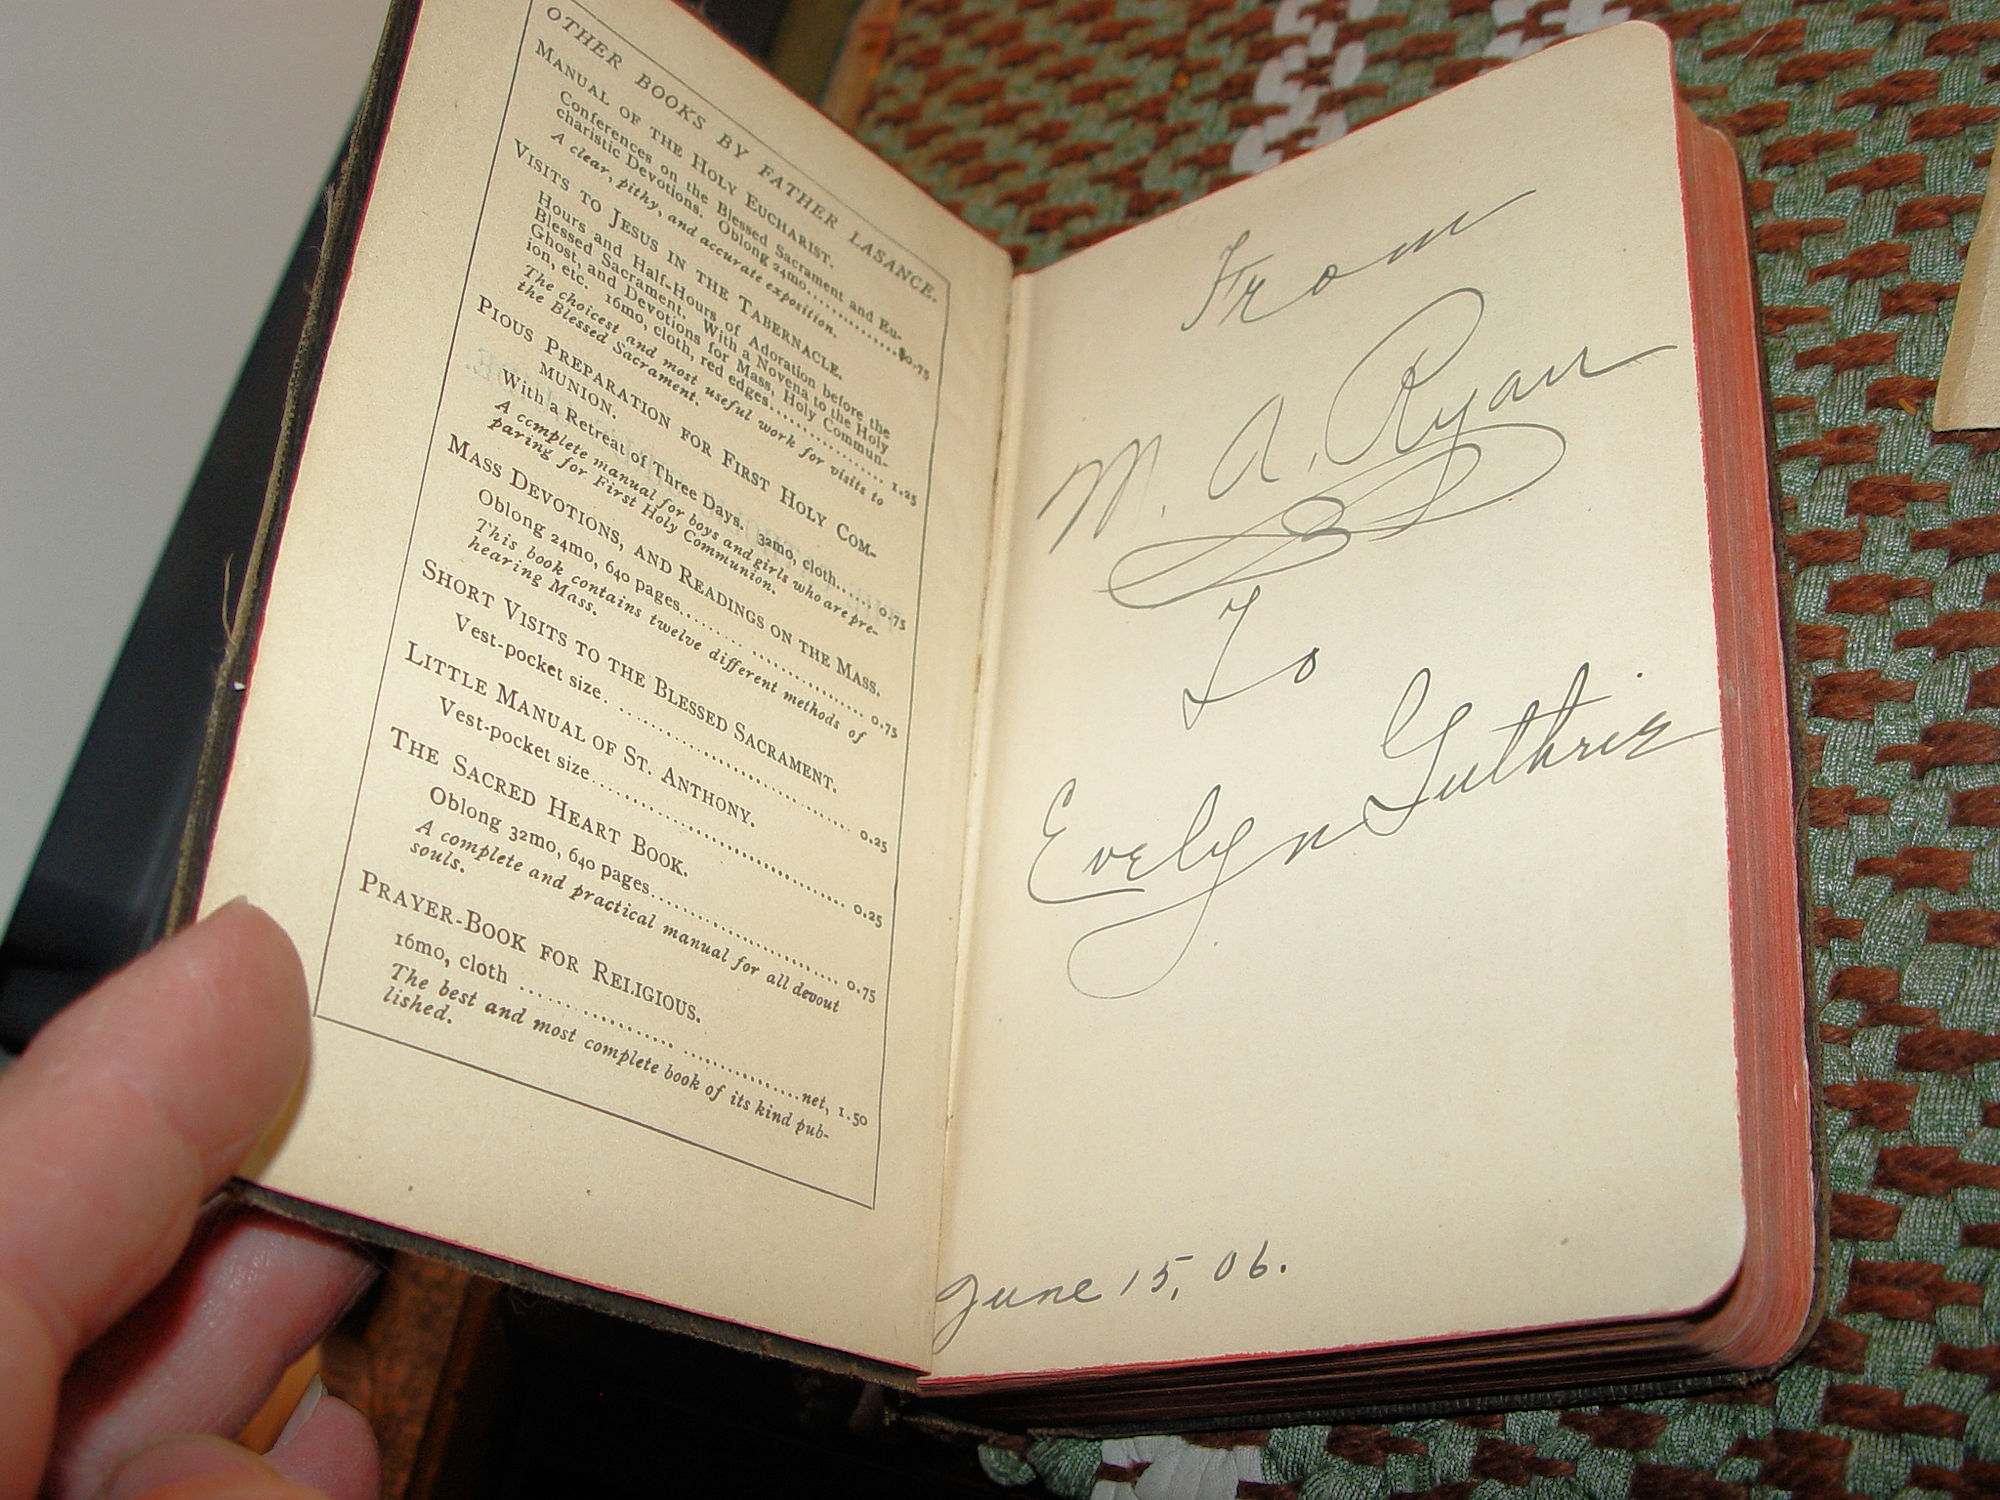 OTHER BOOKS BY FATHER LASANCE.
MANUAL OF THE HOLY EUCHARIST.
Conferences on the Blessed Sacrament and Eu-
charistic Devotions. Oblong 24mo..............$0.75
A clear, pithy, and accurate exposition.
VISITS TO JESUS IN THE TABERNACLE.
Hours and Half-Hours of Adoration before the
Blessed Sacrament. With a Novena to the Holy
Ghost, and Devotions for Mass, Holy Commun-
ion, etc. 16mo, cloth, red edges.................. 1.25
The choicest and most useful work for visits to
the Blessed Sacrament.
PIOUS PREPARATION FOR FIRST HOLY COM-
MUNION.
With a Retreat of Three Days. 32mo, cloth...... 0.75
A complete manual for boys and girls who are pre-
paring for First Holy Communion.
MASS DEVOTIONS, AND READINGS ON THE MASS.
Oblong 24mo, 640 pages........................... 0.75
This book contains twelve different methods of
hearing Mass.
SHORT VISITS TO THE BLESSED SACRAMENT.
Vest-pocket size. ................................. 0.25
LITTLE MANUAL OF ST. ANTHONY.
Vest-pocket size................................... 0.25
THE SACRED HEART BOOK.
Oblong 32mo, 640 pages........................... 0.75
A complete and practical manual for all devout
souls.
PRAYER-BOOK FOR RELIGIOUS.
16mo, cloth ...................................net, 1.50
The best and most complete book of its kind pub-
lished.
From
M. A. Ryan
To
Evelyn Guthrie
June 15, 06.